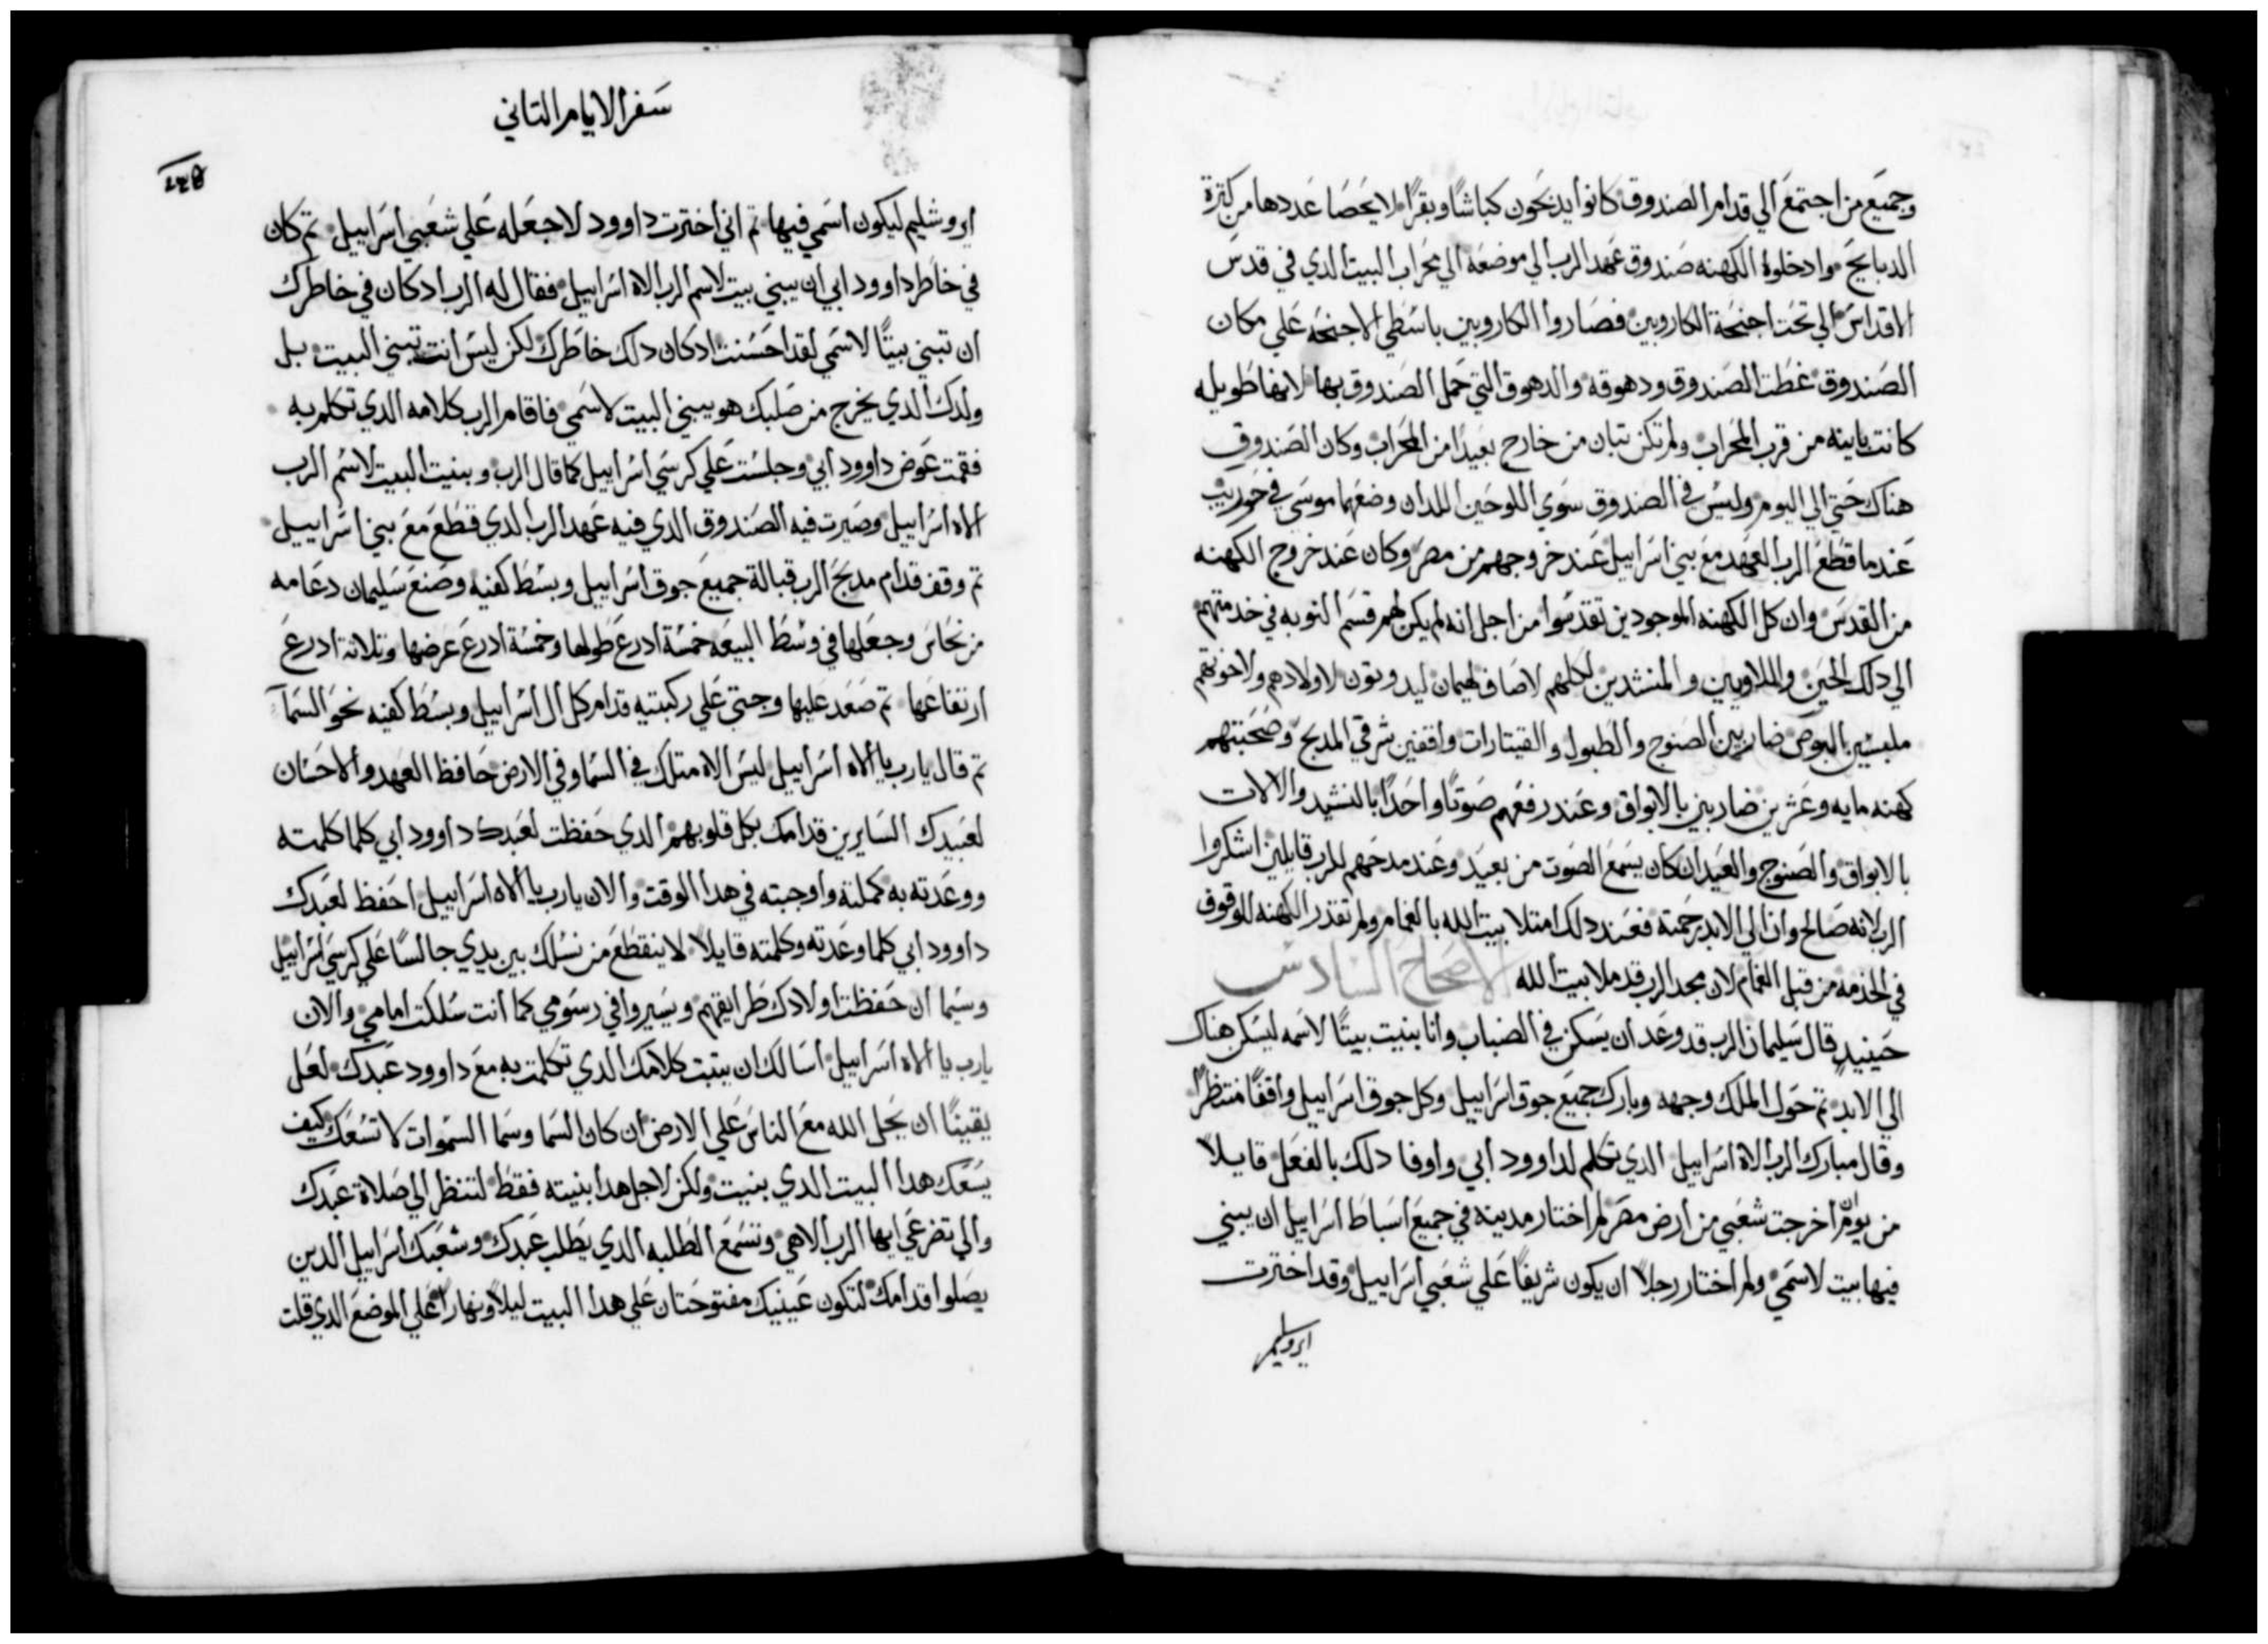 وجميع من اجتمع الي قدام الصندوق كانوا يدبحون كباشًا وبقرًا لا يحصا عددها من كثرة
الدبايح وادخلوا الكهنه صندوق عهد الرب الي موضعه الي محراب البيت الدي في قدس
الاقداس الي تحت اجنحة الكاروبين فصاروا الكاروبين باسطي الاجنحه علي مكان
الصندوق غطت الصندوق ودهوقه والدهوق التي حمل الصندوق بها لانها طويله
كانت باينه من قرب المحراب ولم تكن تبان من خارج بعيدًا من المحراب وكان الصندوق
هناك حتي الي اليوم وليس في الصندوق سوي اللوحين اللدان وضعهما موسي في حوريب
عندما قطع الرب العهد مع بني اسراييل عند خروجهم من مصر وكان عند خروج الكهنه
من القدس وان كل الكهنه الموجودين تقدسوا من اجل انه لم يكن لهم قسم النوبه في خدمتهم
الي دلك الحين والملاويين والمنشدين لكلهم لاصاف لهيمان ليدوتون لاولادهم ولاخوتهم
ملبسين البوص ضاربين الصنوج والطبول والقيتارات واقفين شرقي المدبح وصحبتهم
كهنه مايه وعشرين ضاربين بالابواق وعند رفعهم صوتًا واحدًا بالنشيد والالات
بالابواق والصنوج والعيدان كان يسمع الصوت من بعيد وعند مدحهم للرب قايلين اشكروا
الرب لانه صالح وان الي الابد رحمته فعند دلك امتلا بيت الله بالغمام ولم تقدر الكهنه للوقوف
في الخدمه من قبل الغمام لان مجد الرب قد ملا بيت الله الاصحاح السادس
حينيد قال سليمان الرب قد وعد ان يسكن في الضباب وانا بنيت بيتًا لاسمه ليسكن هناك
الي الابد تم حول الملك وجهه وبارك جميع جوق اسراييل وكل جوق اسراييل واقفًا منتظرًا
وقال مبارك الرب الاه اسراييل الدي تكلم لداوود ابي واوفا دلك بالفعل قايلا
من يوم ان اخرجت شعبي من ارض مصر لم اختار مدينه في جميع اسباط اسراييل ان يبني
فيها بيت لاسمي ولم اختار رجلاً ان يكون شريفًا علي شعبي اسراييل وقد اخترت
ايروشليم
سفر الايام التاني
ايروشليم ليكون اسمي فيها تم اني اخترت داوود لاجعله علي شعبي اسراييل تم كان
في خاطر داوود ابي ان يبني بيت لاسم الرب الاه اسراييل فقال له الرب اد كان في خاطرك
ان تبني بيتًا لاسمي لقد احسنت اد كان دلك خاطرك لكن ليس انت تبني البيت بل
ولدك الدي يخرج من صلبك هو يبني البيت لاسمي فاقام الرب كلامه الدي تكلم به
فقمت عوض داوود ابي وجلست علي كرسي اسراييل كما قال الرب وبنيت البيت لاسم الرب
الاه اسراييل وصيرت فيه الصندوق الدي فيه عهد الرب الدي قطع مع بني اسراييل
تم وقف قدام مدبح الرب قبالة جميع جوق اسراييل وبسط كفيه وصنع سليمان دعامه
من نحاس وجعلها في وسط البيعه خمسة ادرع طولها وخمسة ادرع عرضها وتلاتة ادرع
ارتفاعها تم صعد عليها وجتي علي ركبتيه قدام كل ال اسراييل وبسط كفيه نحو السما
تم قال يارب يا الاه اسراييل ليس الاه متلك في السما وفي الارض حافظ العهد والاحسان
لعبيدك السايرين قدامك بكل قلوبهم الدي حفظت لعبدك داوود ابي كلما كلمته
ووعدته به كملته واوجبته في هدا الوقت والان يارب يا الاه اسراييل احفظ لعبدك
داوود ابي كلما وعدته وكلمته قايلاً لا ينقطع من نسلك بين يدي جالسًا علي كرسي اسراييل
وسيما ان حفظت اولادك طرايقهم ويسيروا في رسومي كما انت سلكت امامي والان
يارب يا الاه اسراييل اسالك ان يتبت كلامك الدي تكلمت به مع داوود عبدك لعل
يقينًا ان يحل الله مع الناس علي الارض ان كان السما وسما السموات لا تسعك كيف
يسعك هدا البيت الدي بنيت ولكن لاجل هدا بنيته فقط لتنظر الي صلاة عبدك
والي تضرعي ايها الرب الاهي وتسمع الطلبه الدي يطلب عبدك وشعبك اسراييل الدين
يصلوا قدامك لتكون عينيك مفتوحتان علي هدا البيت ليلاً ونهارًا علي الموضع الدي قلت